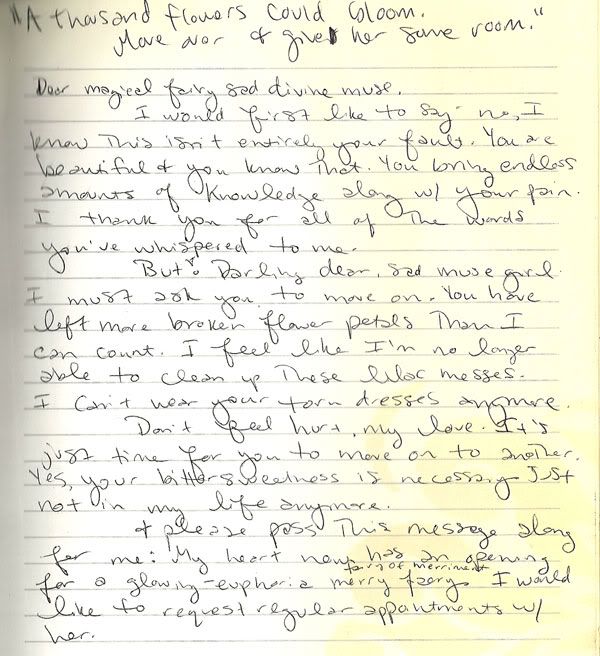 "A thousand flowers could bloom.
Move over & give her some room."
Dear magical fairy sad divine muse.
I would first like to say no, I
know This isn't entirely your fault. You are
beautiful & you know That. You bring endless
amounts of knowledge along w/ your pain.
I thank you for all of The words
you've whispered to me.
But! Darling dear, sad muse girl
I must ask you to move on. You have
left more broken flower petals Than I
can count. I feel like I'm no longer
able to clean up These lilac messes.
I can't wear your torn dresses anymore.
Don't feel hurt, my love. It's
just time for you to move on to another.
Yes, your bittersweetness is necessary Just
not in my life anymore.
& please pass This message along
for me: My heart now has an opening
fairy of merriment
for a glowing-euphoria merry faery. I would
like to request regular appointments w/
her.